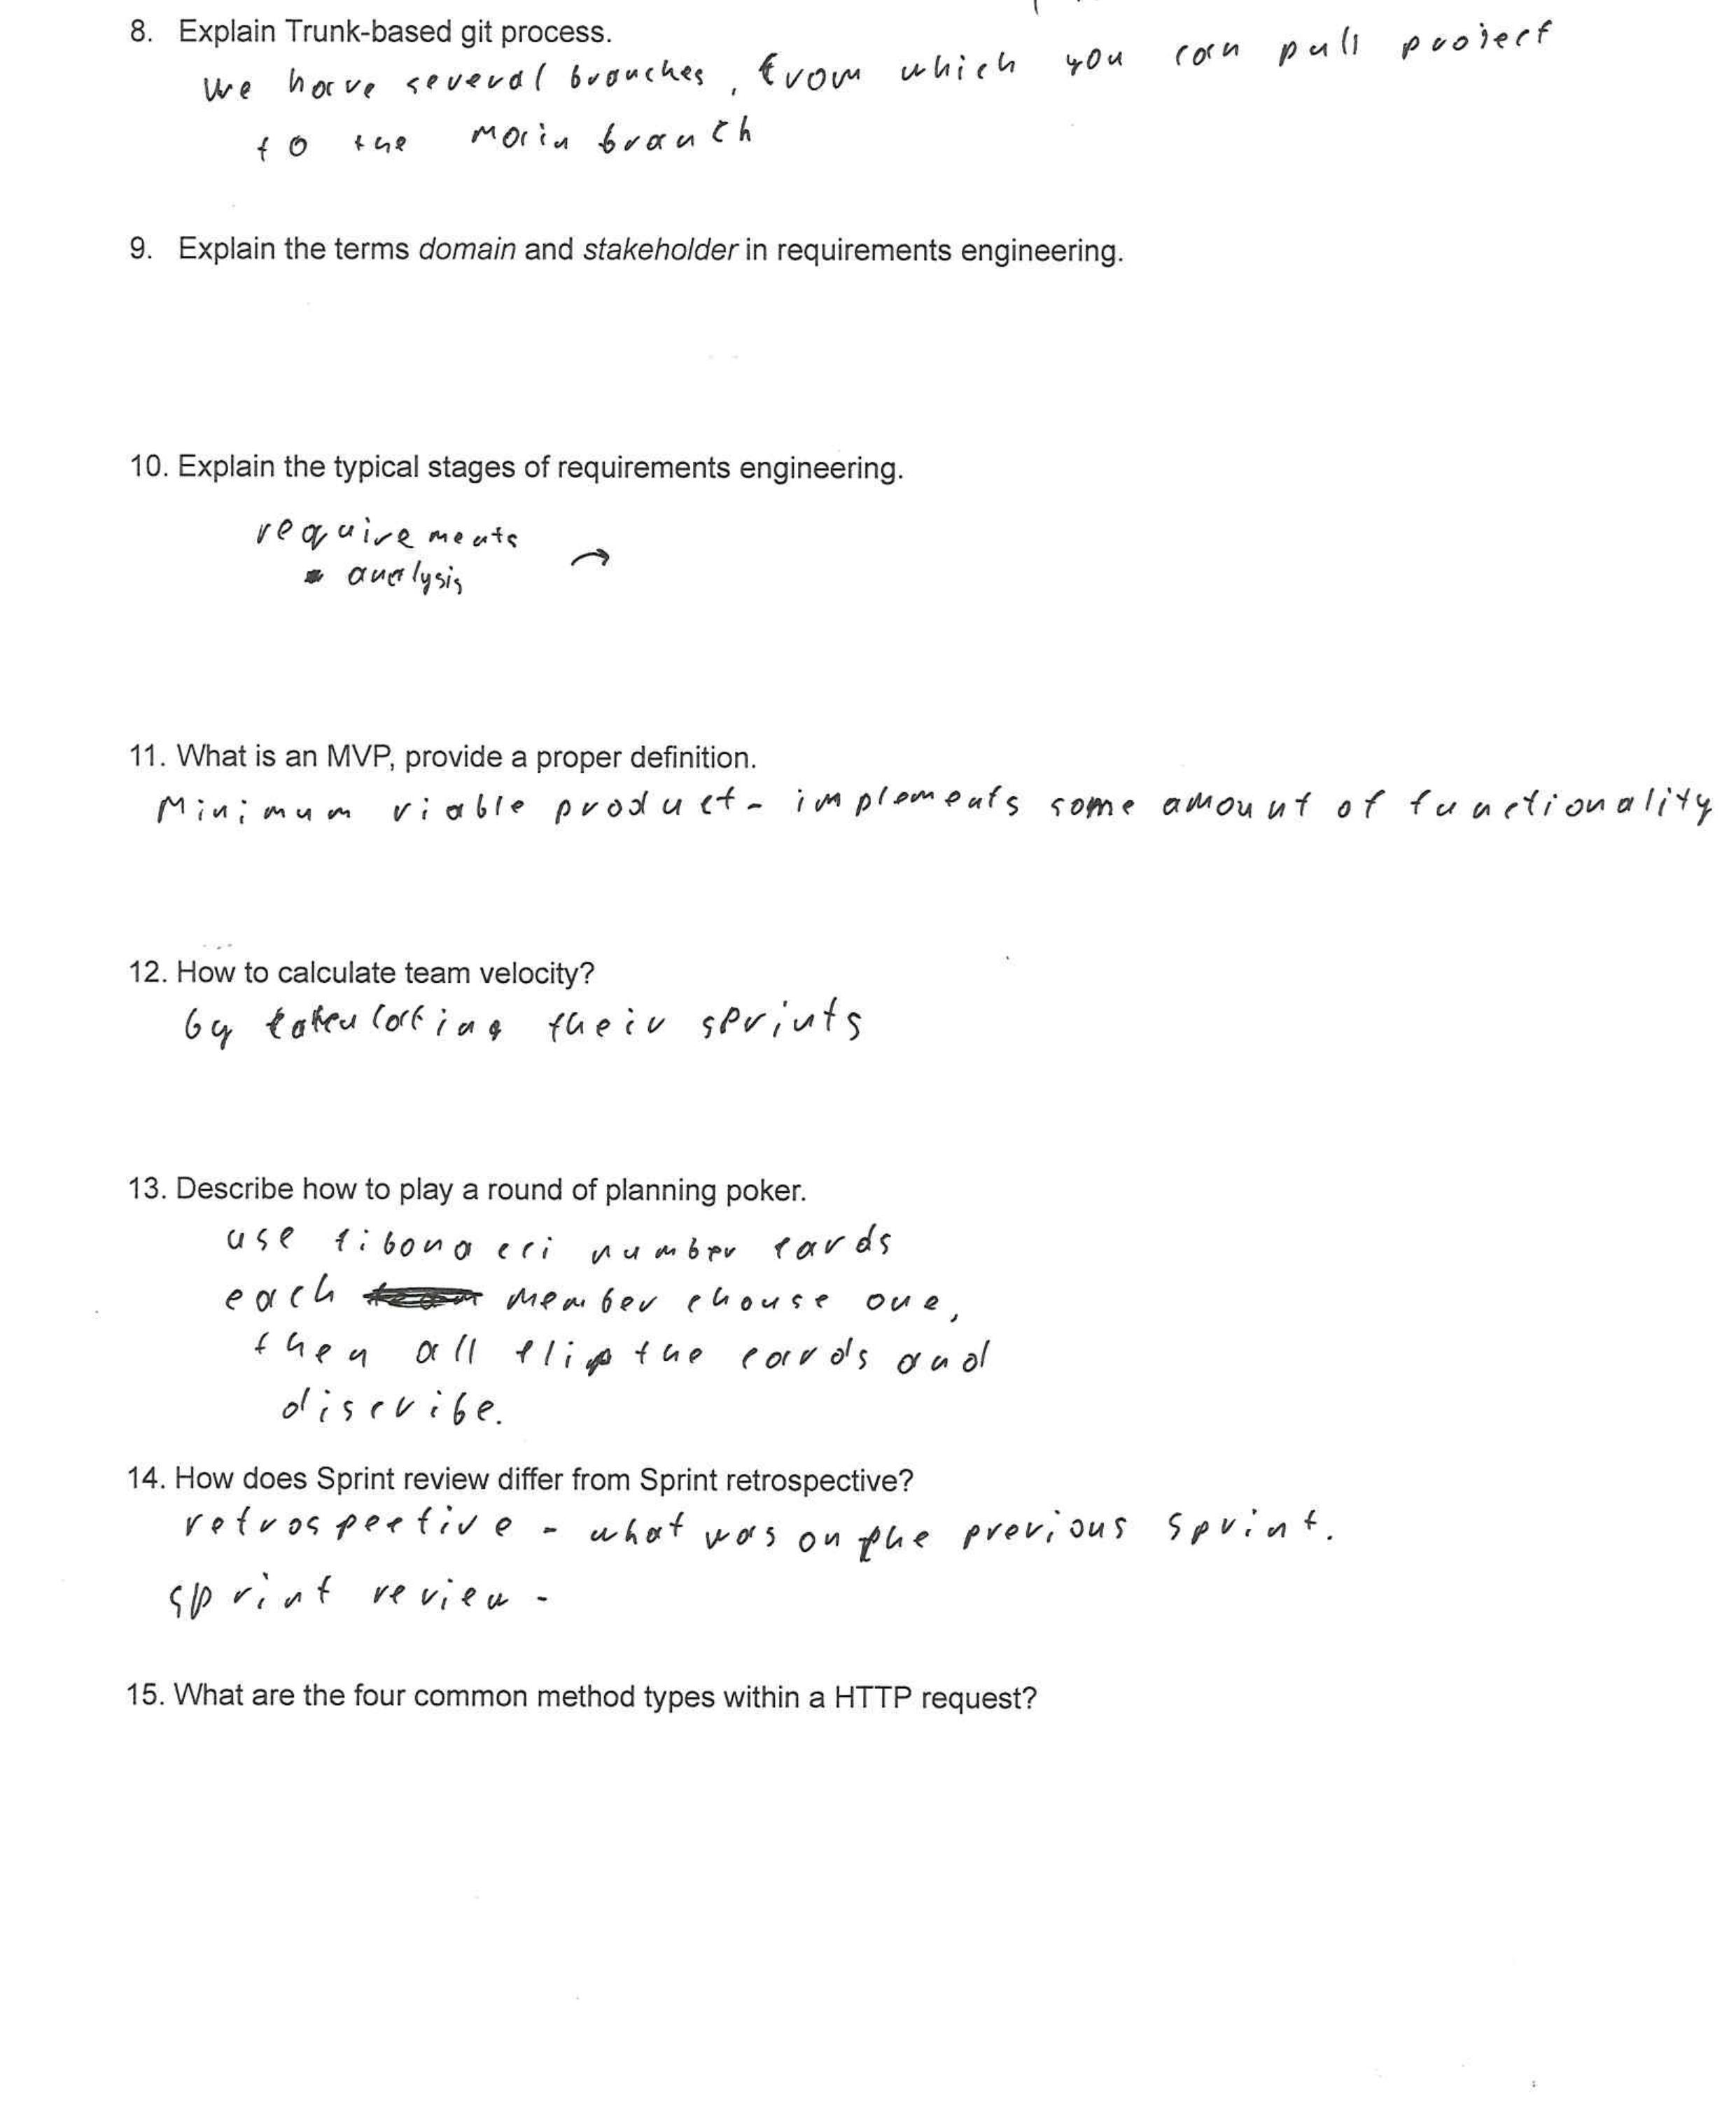 8. Explain Trunk-based git process.
we have several branches, from which you can pull project
to the main branch
9. Explain the terms domain and stakeholder in requirements engineering.
10. Explain the typical stages of requirements engineering.
requirements →
analysis
11. What is an MVP, provide a proper definition.
Minimum viable product - implements some amount of functionality
12. How to calculate team velocity?
by their sprints
13. Describe how to play a round of planning poker.
use fibonacci number cards
each member chouse one,
then all flip the cards and
discribe.
14. How does Sprint review differ from Sprint retrospective?
retrospective - what was on the previous sprint.
sprint review -
15. What are the four common method types within a HTTP request?